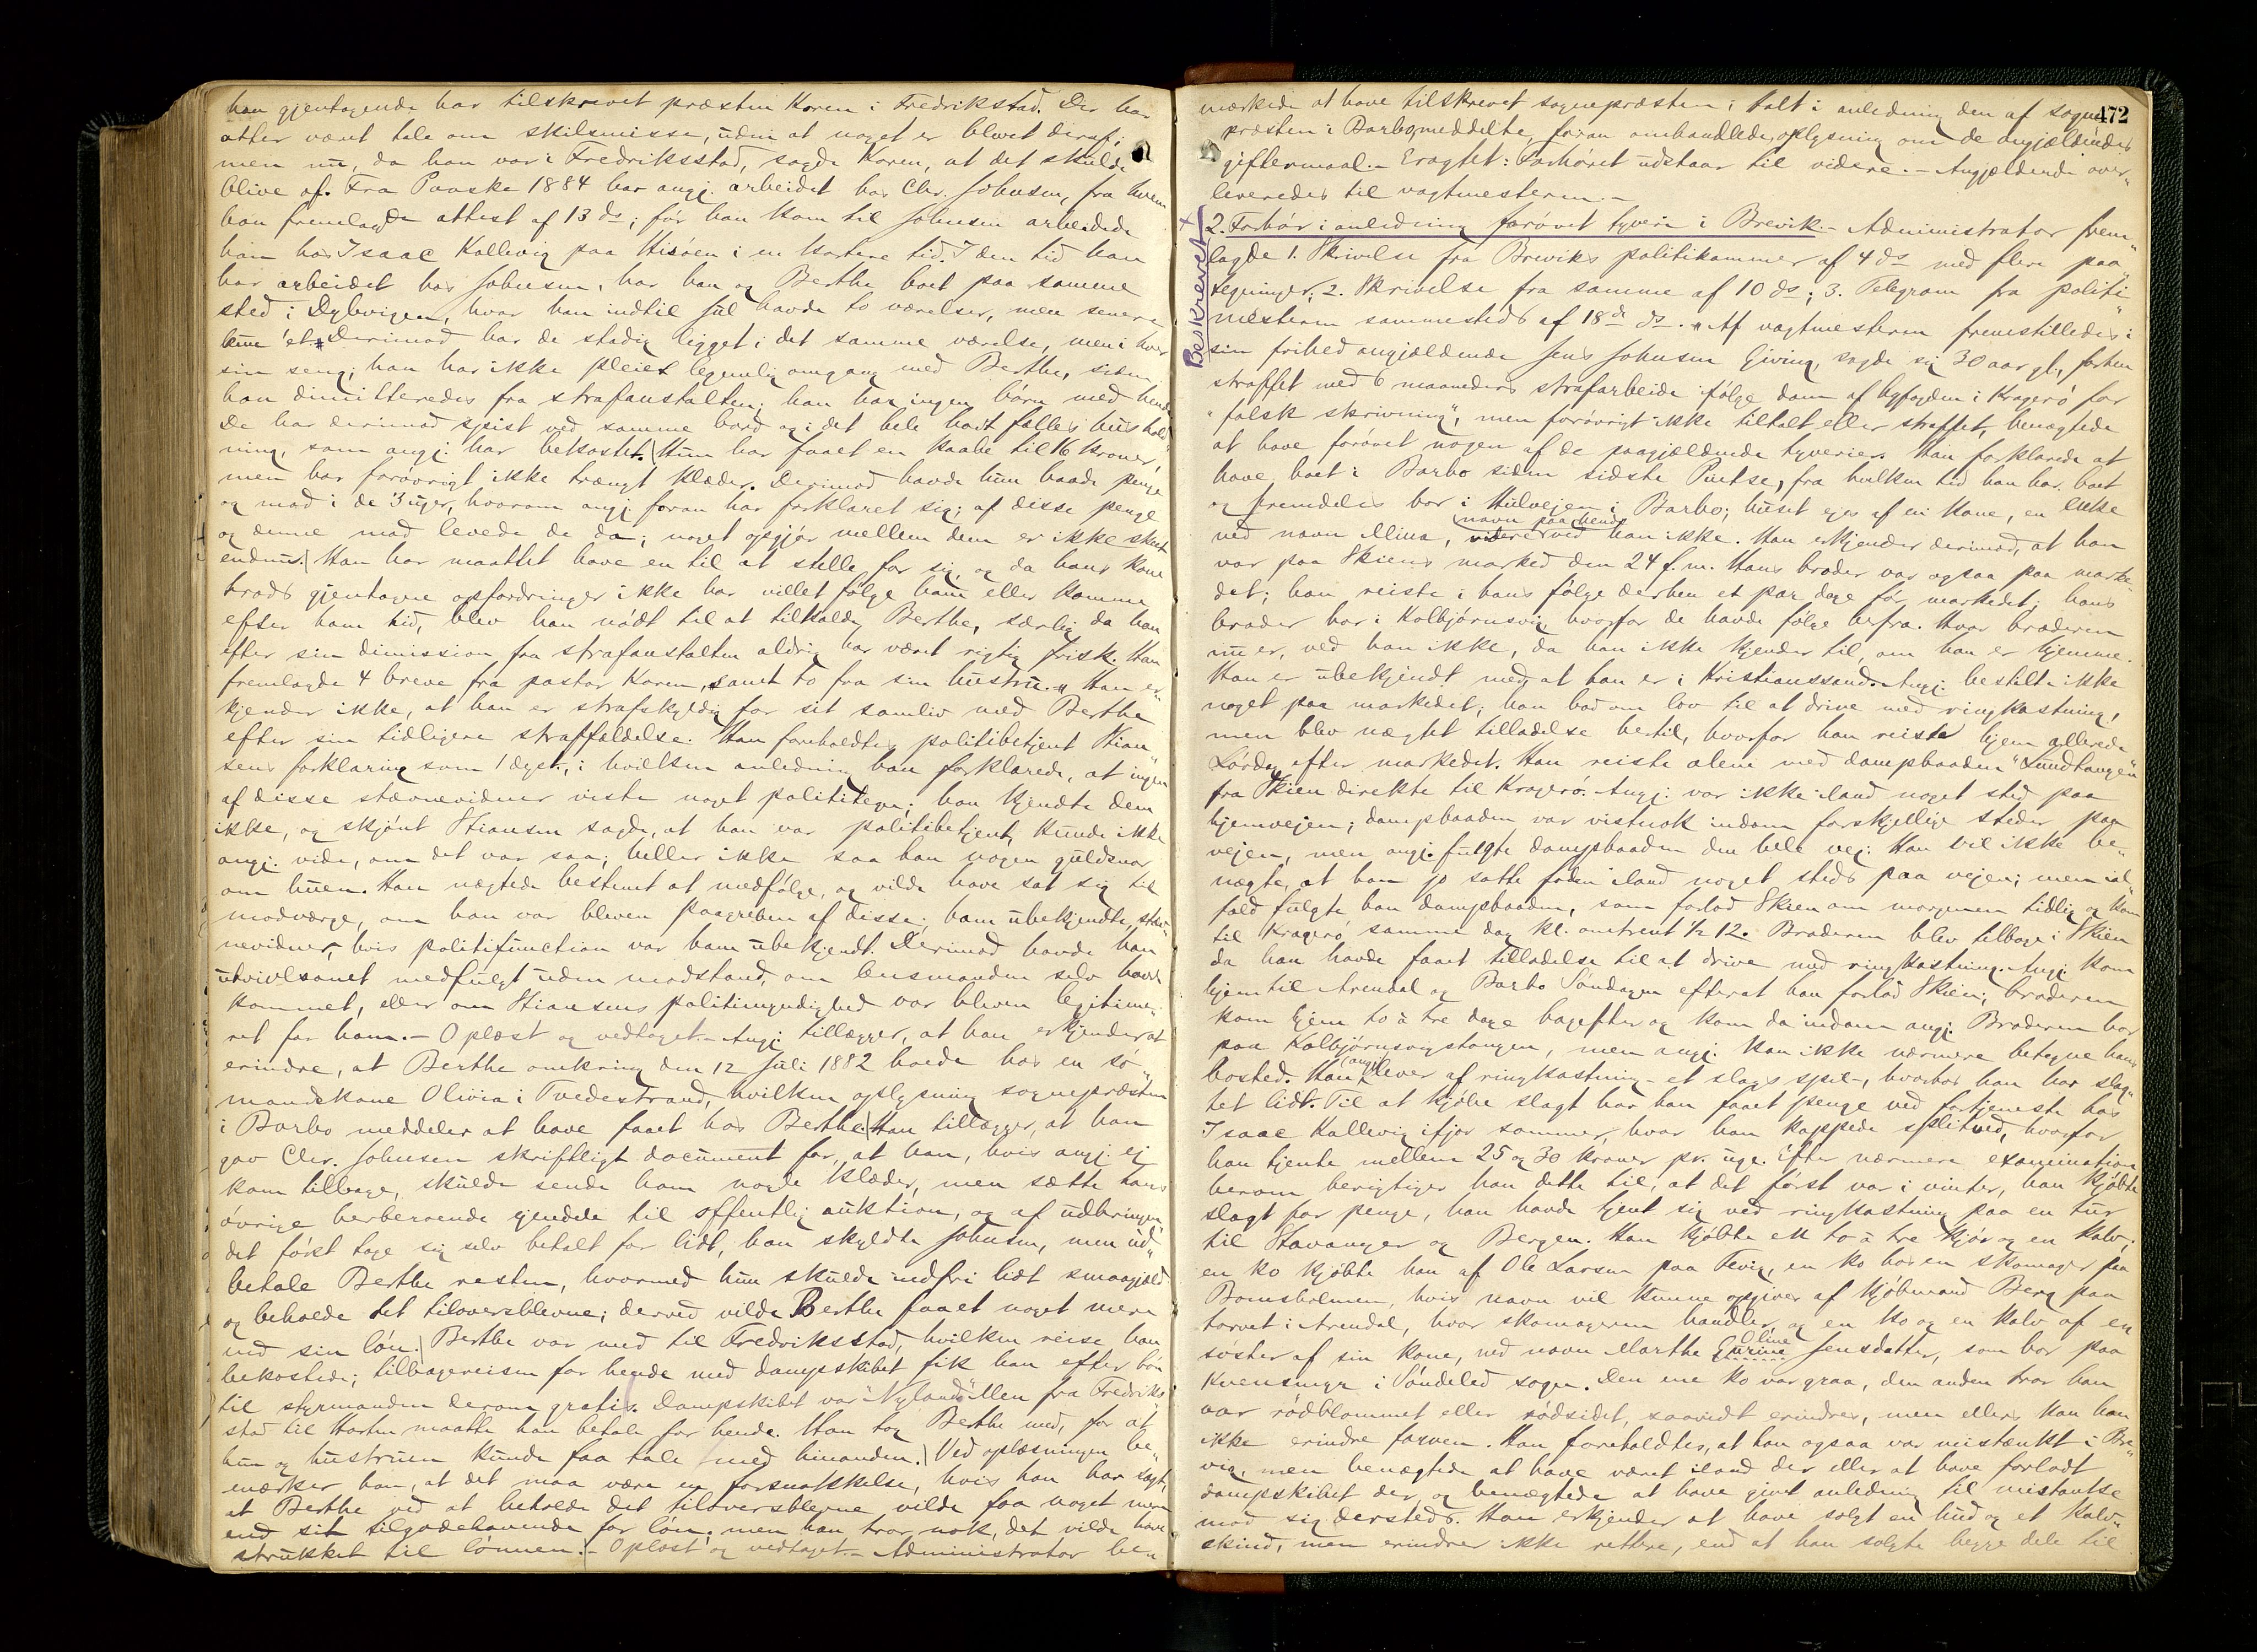 han gjentagende har tilskrevet præsten Koren i Fredrikstad. Der har
atter været tale om skilsmisse, uden at noget er blevet deraf;
men nu, da han var i Fredriksstad, sagde Koren, at det skulde
blive af. Fra Paaske 1884 har angj. arbeidet hos Chr. Johnsen, fra hvem
han fremlagde attest af 13 ds; før han kom til Johnsen arbeidede
han hos Isaac Kallevig paa Hisøen i en kortere tid. I den tid han
har arbeidet hos Johnsen, har han og Berthe boet paa samme
sted i Dybvigen, hvor han indtil jul havde to værelser, men senere
kun ét. Derimod har de stadig ligget i det samme værelse, men i hver
sin seng; han har ikke pleiet legemlig omgang med Berthe, siden
han dimitteredes fra strafanstalten; han har ingen børn med hende
De har derimod spist ved samme bord og i det hele havt fælles hushold
ning, som angj. har bekostet. Hun har faaet en kaabe til 16 kroner,
men har forøvrigt ikke trængt klæder. Derimod havde hun baade penge
og mad i de 3 uger, hvorom angj. foran har forklaret sig; af disse penge
og denne mad levede de da; noget opgjør mellem dem er ikke skeet
endnu. Han har maattet have en til at stelle for sig, og da hans kone
trods gjentagne opfordringer ikke har villet følge ham eller komme
efter ham hid, blev han nødt til at tilkalde Berthe, særlig da han
efter sin dimission fra strafanstalten aldrig har været rigtig frisk. Han
fremlagde 4 breve fra pastor Koren, samt to fra sin hustru. Han er-
kjender ikke, at han er strafskyldig for sit samliv med Berthe
efter sin tidligere straffældelse. Han foreholdtes politibetjent Stian
sens forklaring som 1 deps., i hvilken anledning han forklarede, at ingen
af disse stævnevidner viste noget polititegn; han kjendte dem
ikke, og skjønt Stiansen sagde, at han var politibetjent, kunde ikke
angj. vide, om det var saa; heller ikke saa han nogen guldsnor
om huen. Han nægtede bestemt at medfølge, og vilde have sat sig til
modværge, om han var bleven paagreben af disse, ham ubekjendte, stæv
nevidner, hvis politifunction var ham ubekjendt. Derimod havde han
utvivlsomt medfulgt uden modstand, om lensmanden selv havde
kommet, eller om Stiansens politimyndighed var bleven legitime-
ret for ham. - Oplæst og vedtaget. - Angj. tillægger, at han erkjender at
erindre, at Berthe omkring den 12 Juli 1882 boede hos en sø-
mandskone Olivia i Tvedestrand, hvilken oplysning sognepræsten
i Barbo meddeler at have faaet hos Berthe. Han tillægger, at han
gav Chr. Johnsen skriftligt document for, at han, hvis angj. ej
kom tilbage, skulde sende ham nogle klæder, men sætte hans
øvrige herberoende ejendele til offentlig auktion, og af udbringen
det først tage sig selv betalt for lidt, han skyldte Johnsen, men ud-
betale Berthe resten, hvormed hun skulde indfri lidt smaagjæld
og beholde det tiloversblevne; derved vilde Berthe faaet noget mere
end sin løn. Berthe var med til Fredriksstad, hvilken reise han
bekostede; tilbagereisen for hende med dampskibet fik han efter bøn
til styrmanden derom gratis. Dampskibet var "Nyland". Men fra Fredriks
stad til Horten maatte han betale for hende. Han tog Berthe med, for at
hun og hustruen kunde faa tale med hinanden. Ved oplæsningen be-
mærker han, at det maa være en forsnakkelse, hvis han har sagt,
at Berthe ved at beholde det tiloversblevne vilde faa noget mere
end sit tilgodehavende for løn; men han tror nok, det vilde have
strukket til lønnen. - Oplæst og vedtaget. - Administrator be-
472
mærkede at have tilskrevet sognepræsten i Holt i anledning den af sogne
præsten i Barbo meddelte, foran omhandlede, oplysning om de angjældendes
giftermaal. - Eragtet: Forhøret udstaar til videre. - Angjældende over-
leveredes til vagtmesteren. -
Beskrevet
2. Forhør i anledning forøvet tyveri i Brevik. - Administrator frem-
lagde 1. Skrivelse fra Breviks politikammer af 4 ds med flere paa
tegninger; 2. Skrivelse fra samme af 10 ds; 3. Telegram fra politi
mesteren sammesteds af 18de ds. Af vagtmesteren fremstilledes i
sin frihed angjældende Jens Johnsen Giving, sagde sig 30 aar gl., forhen
straffet med 6 maaneders strafarbeide ifølge dom af byfogden i Kragerø for
"falsk skrivning", men forøvrigt ikke tiltalt eller straffet, benægtede
at have forøvet nogen af de paagjældende tyverier. Han forklarede at
have boet i Barbo siden sidste Pintse, fra hvilken tid han har boet
og fremdeles bor i Hulvejen i Barbo; huset eges af en kone, en enke
ved navn Mina, videre navn paa hende ved han ikke. Han erkjender derimod, at han
var paa Skiens marked den 24 f.m. Hans broder var ogsaa paa marke-
det; han reiste i hans følge derhen et par dage før markedet; hans
broder bor i Kolbjørnsvig hvorfor de havde følge herfra. Hvor broderen
nu er, ved han ikke, da han ikke kjender til, om han er hjemme.
Han er ubekjendt med, at han er i Kristianssand. Angj. bestilte ikke
noget paa markedet; han bad om lov til at drive med ringkastning,
men blev nægtet tilladelse hertil, hvorfor han reiste hjem allerede
Lørdag efter markedet. Han reiste alene med dampbaaden "Lundtangen"
fra Skien direkte til Kragerø. Angj. var ikke iland noget sted paa
hjemvejen; dampbaaden var vistnok indom forskjellige steder paa
vejen, men angj. fulgte dampbaaden den hele vej. Han vil ikke be-
nægte, at han jo satte foden iland noget steds paa vejen; men ial-
fald fulgte han dampbaaden, som forlod Skien om morgenen tidlig og kom
til Kragerø samme dag kl. omtrent ½ 12. Broderen blev tilbage i Skien
da han havde faaet tilladelse til at drive med ringkastning. Angj. kom
hjem til Arendal og Barbo Søndagen efterat han forlod Skien; broderen
kom hjem to à tre dage bagefter og kom da indom angj. Broderen bor
paa Kolbjørnsvigstangen, men angj. kan ikke nærmere betegne hans
bosted. Han (angj.) lever af ringkastning - et slags spil -, hvorhos han har slag-
tet lidt. Til at kjøbe slagt har han faaet penge ved fortjeneste hos
Isaac Kallevig ifjor sommer, hvor han kappede splitved, hvorfor
han tjente mellem 25 og 30 kroner pr. uge. Efter nærmere examination
herom berigtiger han dette til, at det først var i vinter, han kjøbte
slagt for penge, han havde tjent sig ved ringkastning paa en tur
til Stavanger og Bergen. Han kjøbte to à tre kjør og en kalv;
en ko kjøbte han af Ole Larsen paa Fevig, en ko hos en skomager paa
Bomsholmen, hvis navn vil kunne opgives af kjøbmand Berg paa
torvet i Arendal, hvor skomageren handler, og en ko og en kalv af en
søster af sin kone, ved navn Marthe Jensdatter, som bor paa
i Søndeled sogn. Den ene ko var graa, den anden tror han
var rødblommet eller rødsidet, saavidt erindres, men ellers kan han
ikke erindre farven. Han foreholdtes, at han ogsaa var mistænkt i Bre
vig, men benægtede at have været iland der eller at have forladt
dampskibet der, og benægtede at have givet anledning til mistanke
mod sig dersteds. Han erkjender at have solgt en hud og et kalv-
skind, men erindrer ikke rettere, end at han solgte begge dele til